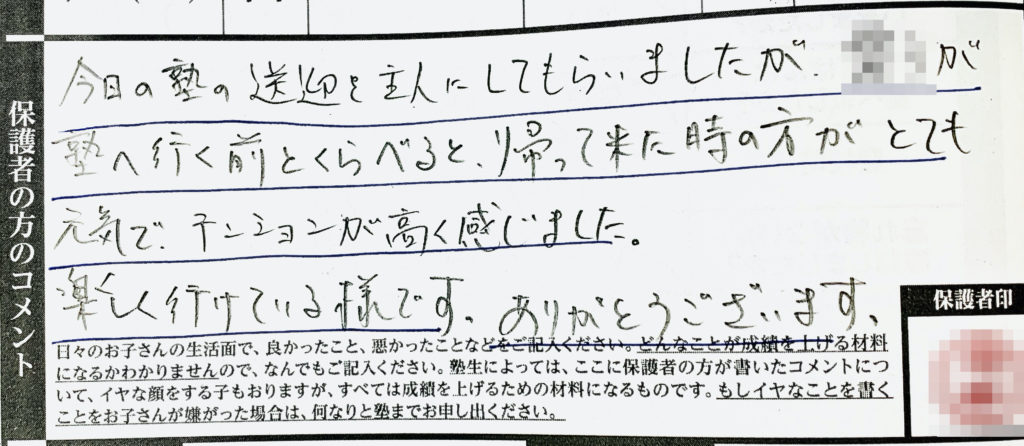 保護者の方のコメント
今日の塾の送迎を主人にしてもらいましたが、が
塾へ行く前とくらべると、帰って来た時の方がとても
元気で、テンションが高く感じました。
楽しく行けている様です。ありがとうございます。
日々のお子さんの生活面で、良かったこと、悪かったことなどをご記入ください。どんなことが成績を上げる材料
になるかわかりませんので、なんでもご記入ください。塾生によっては、ここに保護者の方が書いたコメントにつ
いて、イヤな顔をする子もおりますが、すべては成績を上げるための材料になるものです。もしイヤなことを書く
ことをお子さんが嫌がった場合は、何なりと塾までお申し出ください。
保護者印